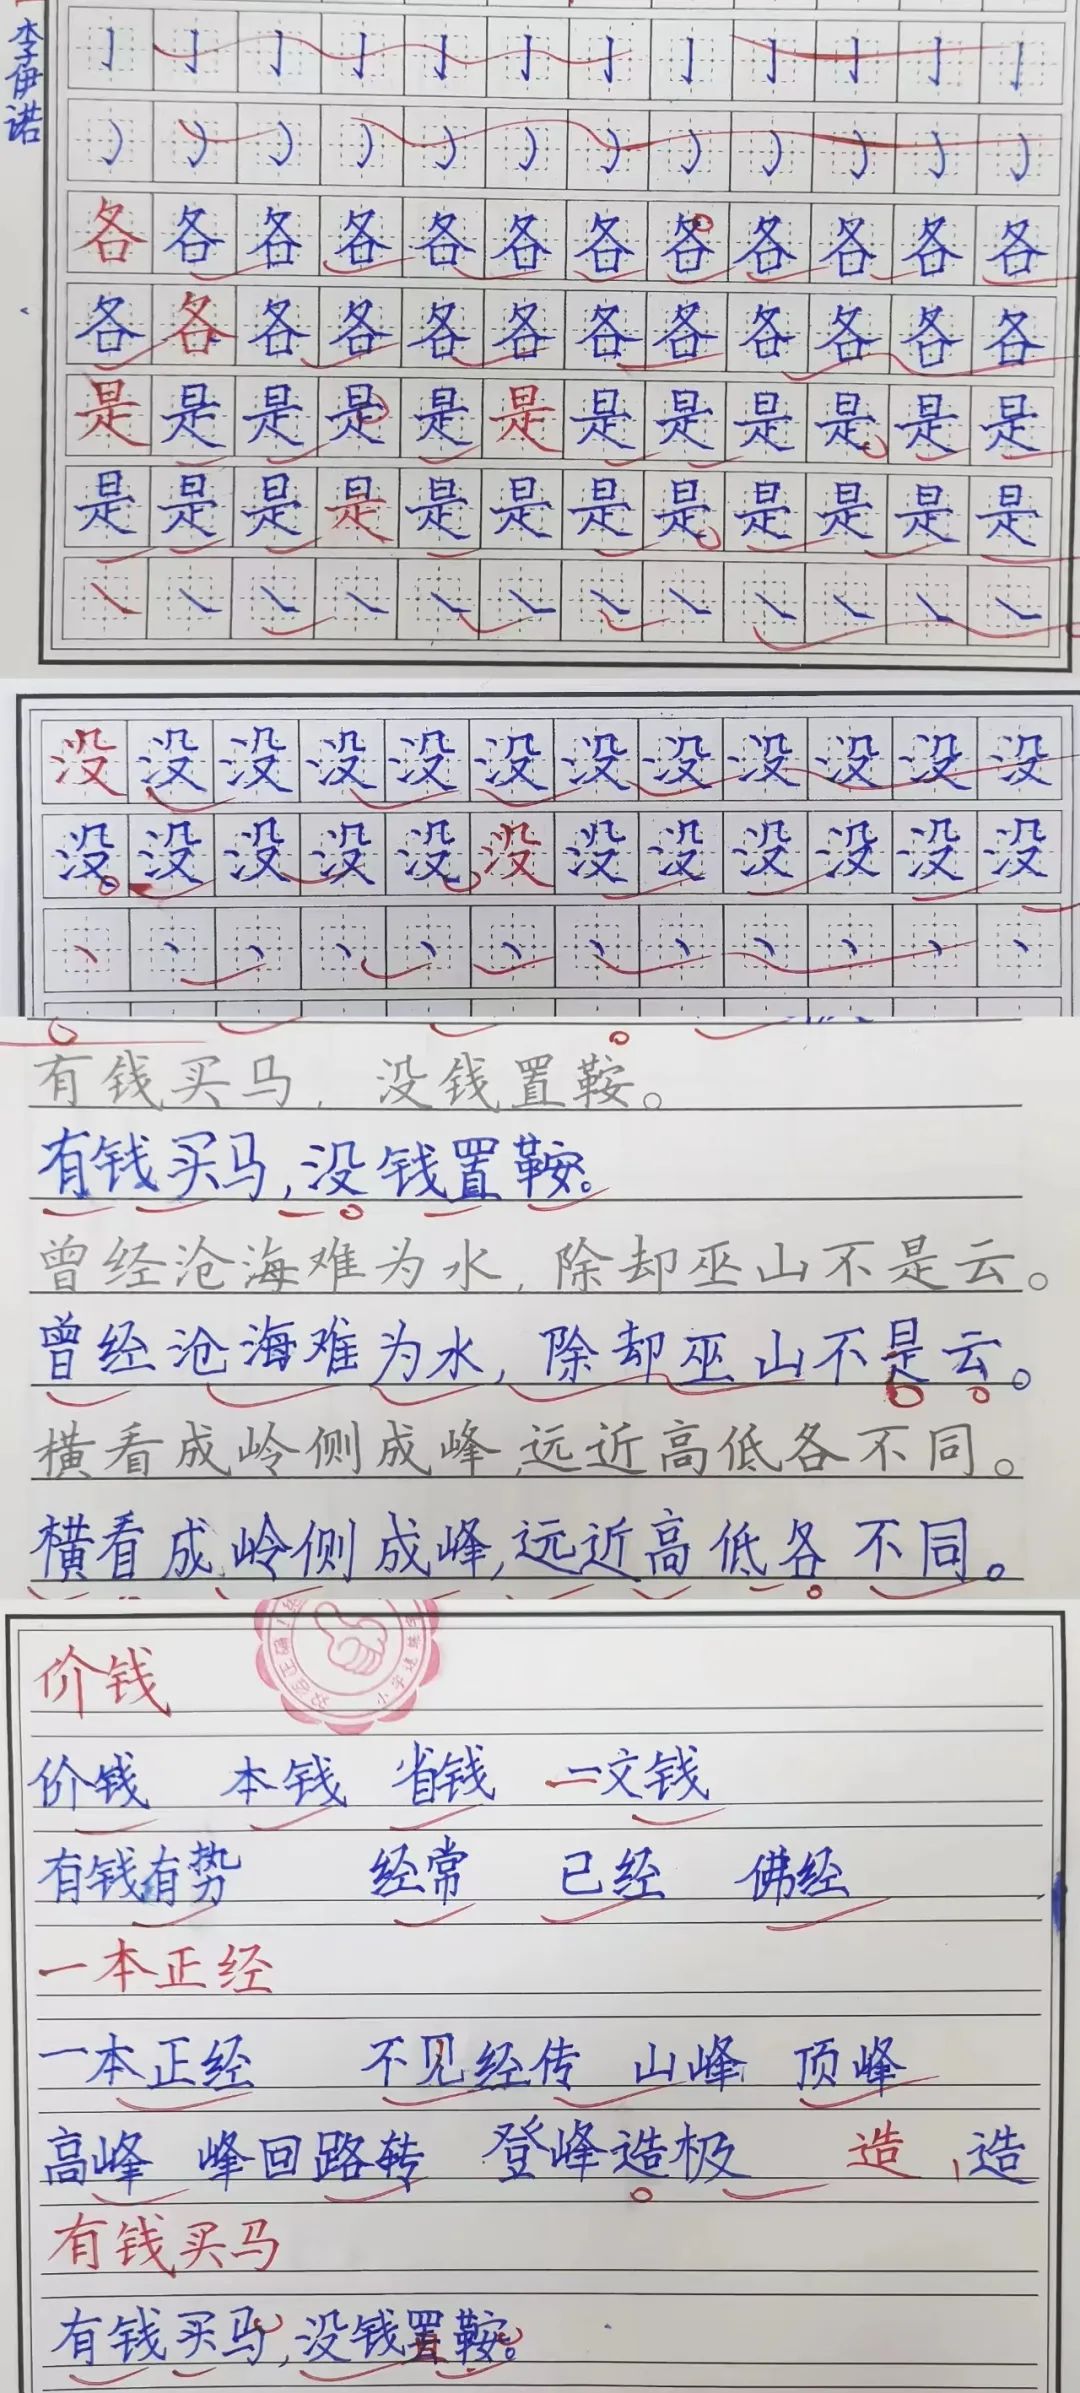 李伊诺
各各各各各各各各各各各各
各各各各各各各各各各各各
是是是是是是是是是是是是
是是是是是是是是是是是是
没没没没没没没没没没没没
没没没没没没没没没没没没
有钱买马，没钱置鞍。
有钱买马，没钱置鞍。
曾经沧海难为水，除却巫山不是云。
曾经沧海难为水，除却巫山不是云。
横看成岭侧成峰，远近高低各不同。
横看成岭侧成峰，远近高低各不同。
价钱
价钱 本钱 省钱 一文钱
有钱有势 经常 已经 佛经
一本正经
一本正经 不见经传 山峰 顶峰
高峰 峰回路转 登峰造极 造 造
有钱买马
有钱买马，没钱置鞍。